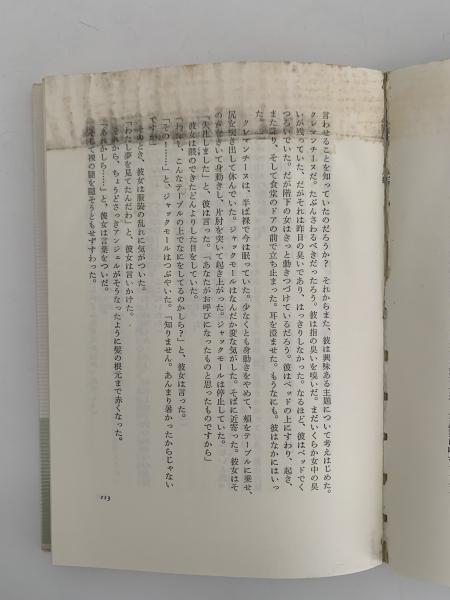 言わせることを知っていたのだろうか? それからまた、彼は興味ある主題について考えはじめた。
クレマンチーヌだ。たぶんさわるべきだったろう。彼は指の臭いを嗅いだ。まだいくらか女中の臭
いが残っていた、だがそれは昨日の臭いであり、はっきりしなかった。なるほど、彼はベッドでく
つろいでいた。だが階下の女はきっと動きつづけているだろう。彼はベッドの上にすわり、起き、
また降り、そして食堂のドアの前で立ち止まった。耳を澄ませた。もうなにも。彼はなかにはいっ
た。
クレマンチーヌは、半ば裸で今は眠っていた。少なくとも身動きをやめて、頬をテーブルに乗せ、
尻を突き出して休んでいた。ジャックモールはなんだか変な気がした。そばに近寄った。彼女はそ
の音をきいて身動きし、片肘を突いて起き上がった。ジャックモールは停止していた。
「失礼しました」と、彼は言った。「あなたがお呼びになったものと思ったものですから」
彼女は眼のできたどんよりした目をしていた。
「わたし、こんなテーブルの上でなにをしているのかしら?」と、彼女は言った。
「その!……」と、ジャックモールはつぶやいた。「知りません。あんまり暑かったからじゃない
ですか」
そのとき、彼女は服装の乱れに気がついた。
「わたし夢を見てたんだわ」と、彼女は言いかけた。
それから、ちょうどさっきアンジェルがそうなったように髪の根元まで赤くなった。
「あれかしら……」と、彼女は言葉をついだ。
そして裸の腿を隠そうともせずすわった。
113